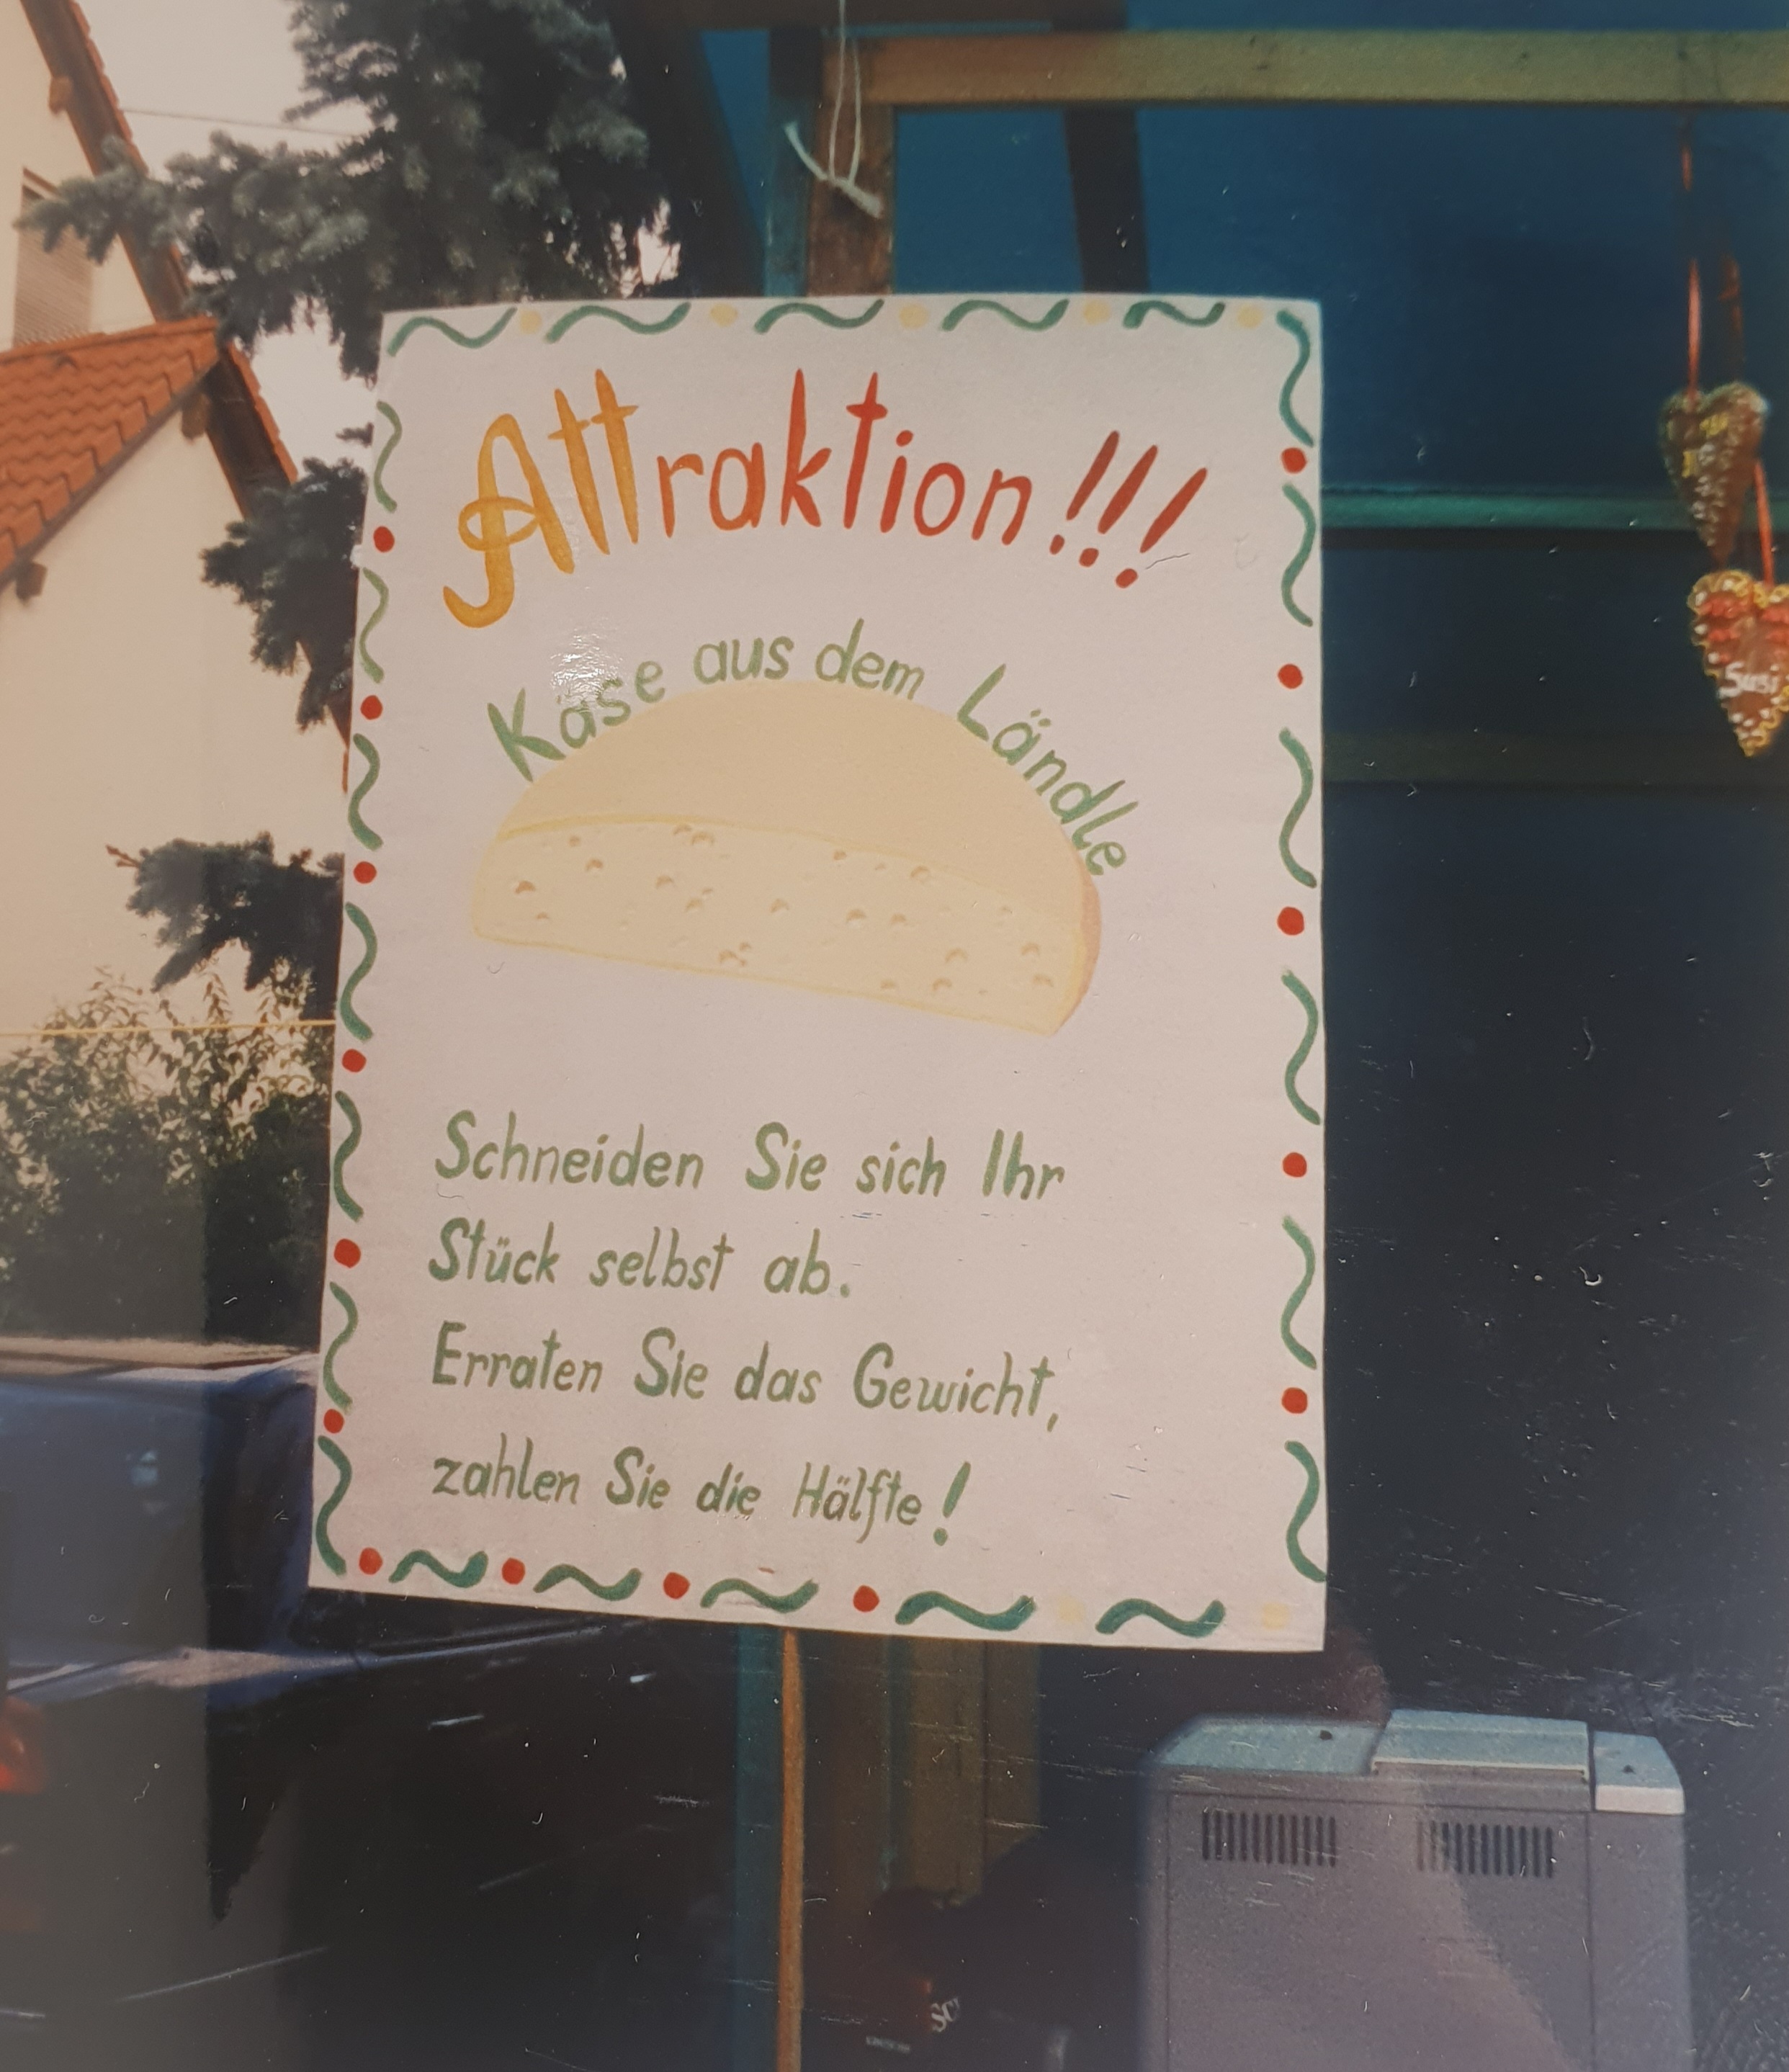 Attraktion!!!
Käse aus dem Ländle
Schneiden Sie sich Ihr
Stück selbst ab.
Erraten Sie das Gewicht,
zahlen Sie die Hälfte!
Susi